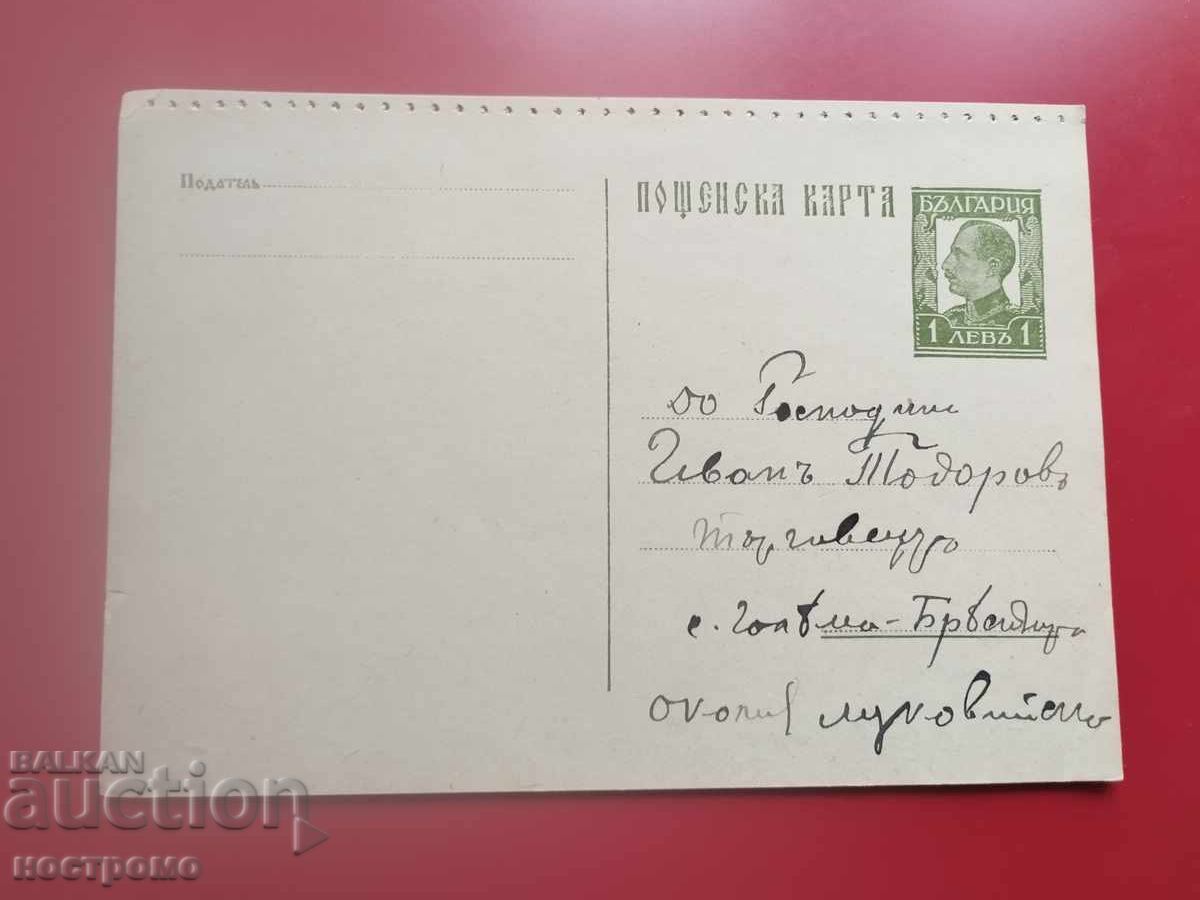 Податѣль
ПОЩЕНСКА КАРТА
БЪЛГАРИЯ
1 ЛЕВЪ 1
до Господин
Иванъ Тодоровъ
търговецъ
с. Голѣма-Брѣстница
околия Луковитско
BALKAN
auction
ностромо